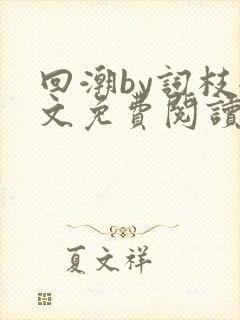 回潮by詞枝
文免費閱讀
夏文祥